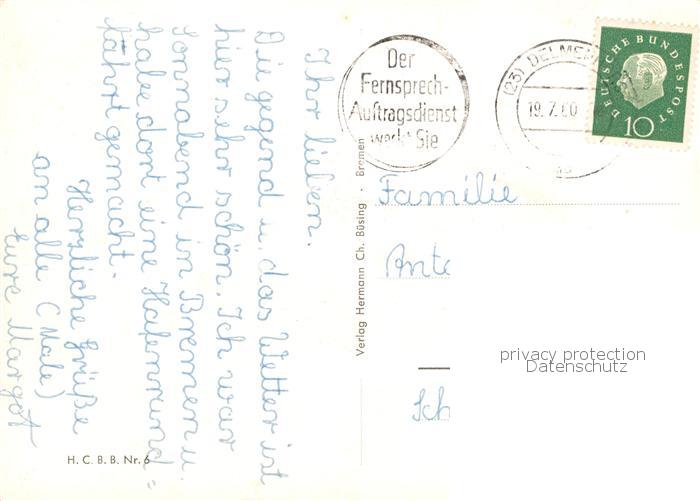 Ihr lieben.
Die gegend u. das Wetter ist
hier sehr schön. Ich war
Sonnabend in Bremen u.
habe dort eine Hafenrund=
fahrt gemacht.
Herzliche Grüße
an alle (Male)
Eure Margot
H. C. B. B. Nr. 6
Verlag Hermann Ch. Büsing · Bremen
Der
Fernsprech-
Auftragsdienst
weckt Sie
(23) DELMEN
19.7.60
DEUTSCHE BUNDESPOST
10
Familie
Ante
Sch
privacy protection
Datenschutz